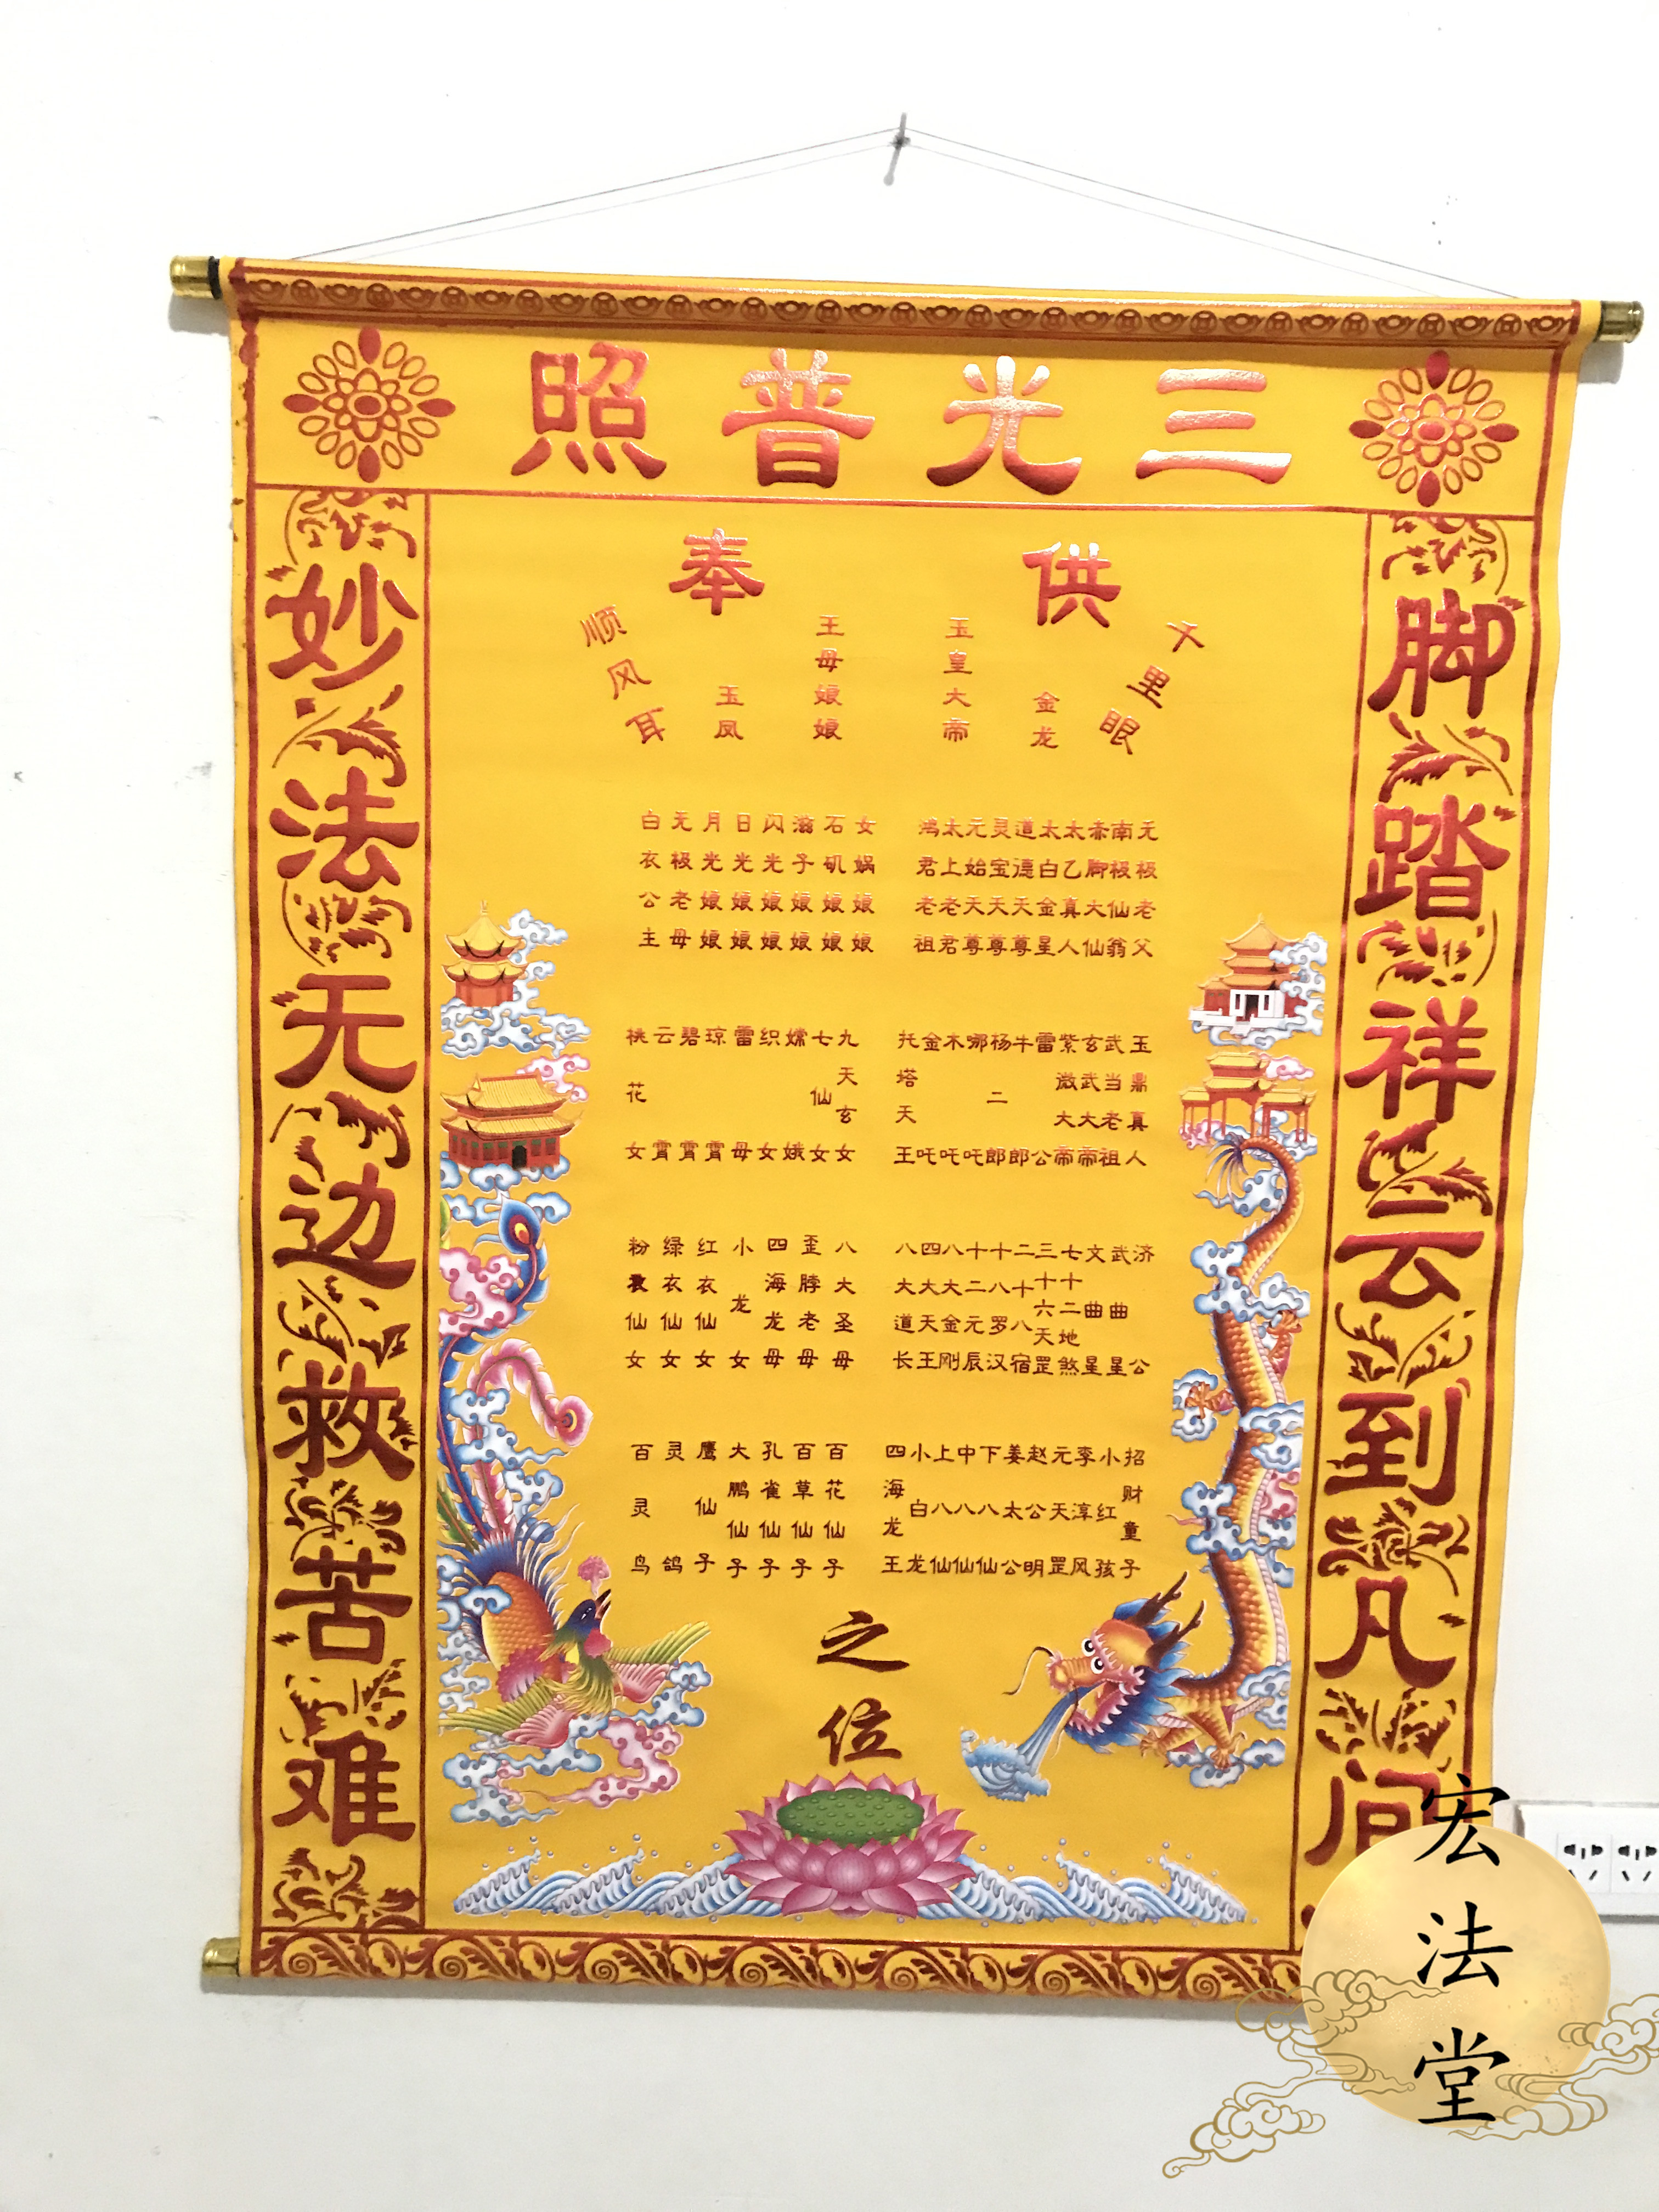 三光普照
脚踏祥云到凡间
供奉
千里眼
金龙
玉皇大帝
王母娘娘
玉凤
顺风耳
无极老父
南极仙翁
赤脚大仙
太乙真人
太白金星
道德天尊
灵宝天尊
元始天尊
太上老君
鸿君老祖
女娲娘娘
石矶娘娘
滋子娘娘
闪光娘娘
日光娘娘
月光娘娘
无极老母
白衣公主
玉鼎真人
武当老祖
玄武大帝
紫微大帝
雷公
牛郎
杨二郎
哪吒
木吒
金吒
托塔天王
九天玄女
七仙女
嫦娥
织女
雷母
琼霄
碧霄
云霄
桃花女
济公
武曲星
文曲星
七十二地煞
三十六天罡
二十八宿
十八罗汉
十二元辰
八大金刚
四大天王
八大道长
八大圣母
歪脖老母
四海龙母
小龙女
红衣仙女
绿衣仙女
粉衣仙女
招财童子
小红孩
李淳风
元天罡
赵公明
姜太公
下八仙
中八仙
上八仙
小白龙
四海龙王
百花仙子
百草仙子
孔雀仙子
大鹏仙子
鹰仙子
灵鸽
百灵鸟
之位
妙法无边救苦难
宏法堂